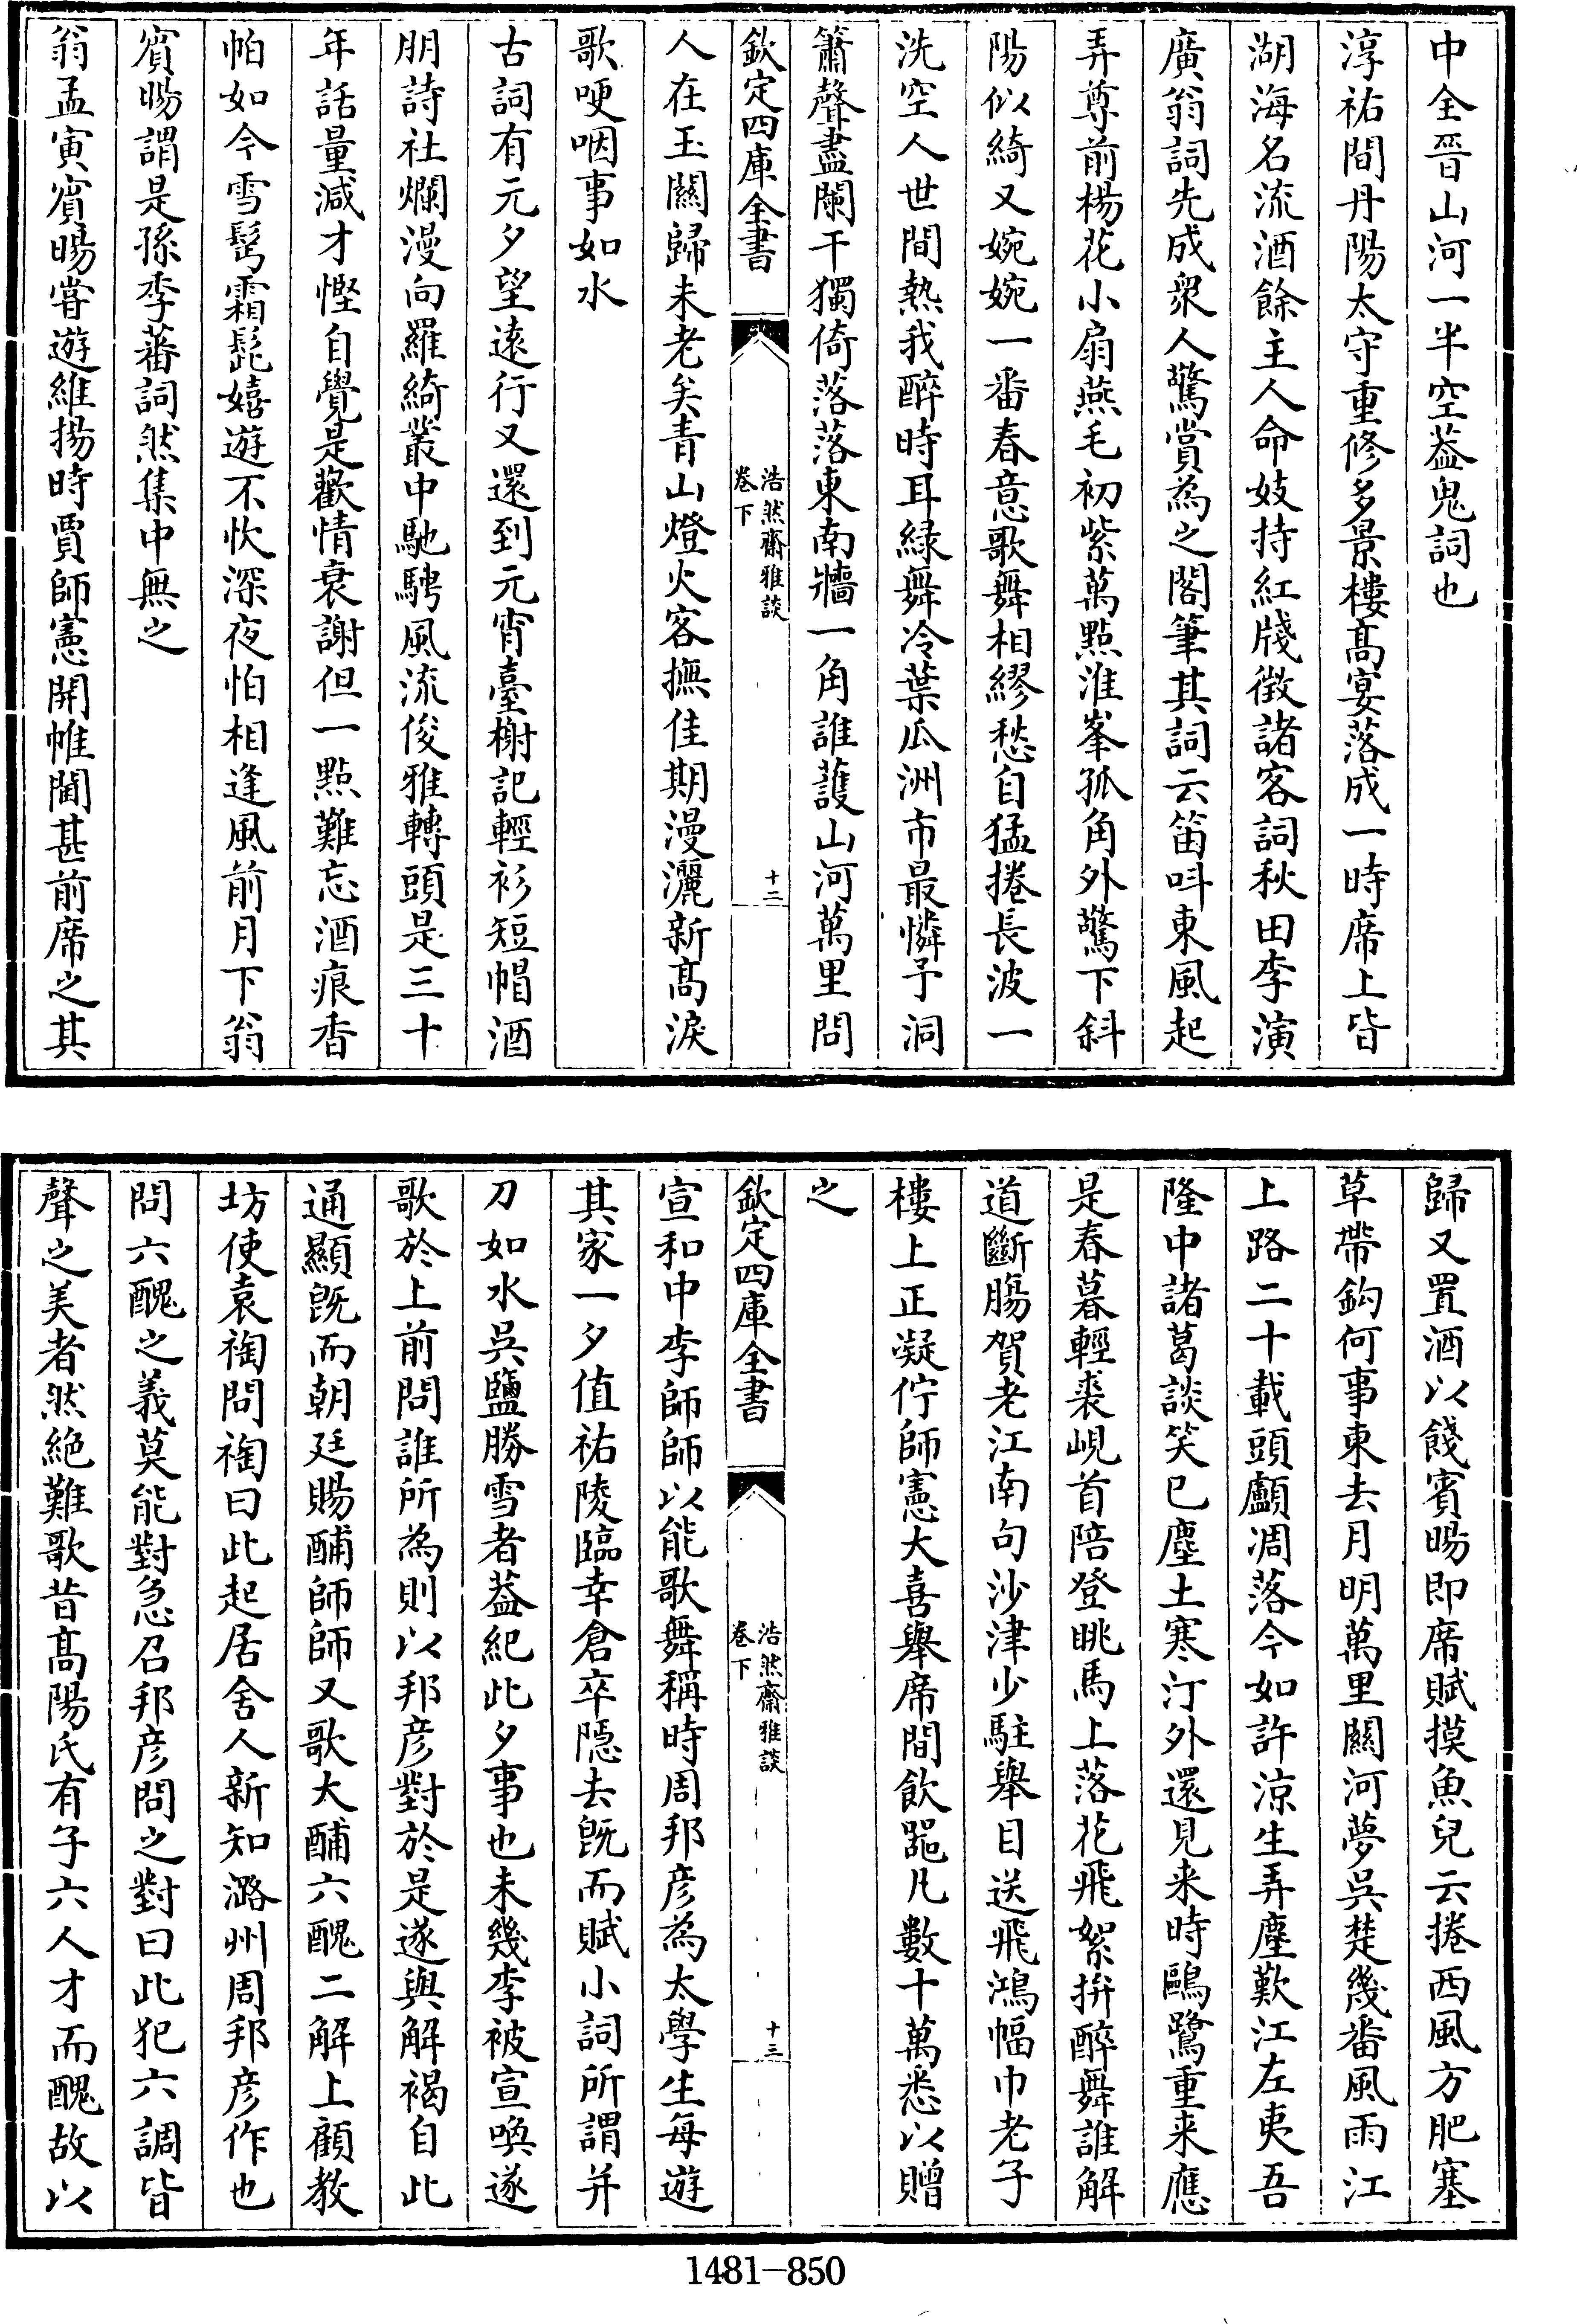 中全晉山河一半空葢鬼詞也
淳祐間丹陽太守重修多景樓髙宴落成一時席上皆
湖海名流酒餘主人命妓持紅牋徴諸客詞秋田李演
廣翁詞先成衆人驚賞為之閣筆其詞云笛呌東風起
弄尊前楊花小扇燕毛初紫萬㸃淮峯孤角外驚下斜
陽似綺又婉婉一番春意歌舞相繆愁自猛捲長波一
洗空人世間熱我醉時耳緑舞冷葉瓜洲市最憐予洞
簫聲盡闌干獨倚落落東南牆一角誰䕶山河萬里問
欽定四庫全書
浩然齋雅談
卷下
十二
人在玉關歸未老矣青山燈火客撫佳期漫灑新髙淚
歌哽咽事如水
古詞有元夕望逺行又還到元宵臺榭記輕衫短帽酒
朋詩社爛漫向羅綺叢中馳騁風流俊雅轉頭是三十
年話量減才慳自覺是歡情衰謝但一㸃難忘酒痕香
帕如今雪鬂霜髭嬉遊不忺深夜怕相逢風前月下翁
賓暘謂是孫季蕃詞然集中無之
翁孟寅賓暘嘗遊維揚時賈師憲開帷閫甚前席之其
歸又置酒以餞賓暘即席賦摸魚兒云捲西風方肥塞
草帶鈎何事東去月明萬里關河夢吳楚幾番風雨江
上路二十載頭顱凋落今如許涼生弄塵歎江左夷吾
隆中諸葛談笑已塵土寒汀外還見来時鷗鷺重来應
是春暮輕裘峴首陪登眺馬上落花飛絮拚醉舞誰解
道斷腸賀老江南句沙津少駐舉目送飛鴻幅巾老子
樓上正凝佇師憲大喜舉席間飲噐凡數十萬悉以贈
之
欽定四庫全書
浩然齋雅談
卷下
十三
宣和中李師師以能歌舞稱時周邦彦為太學生每遊
其家一夕值祐陵臨幸倉卒隱去旣而賦小詞所謂并
刀如水吳鹽勝雪者葢紀此夕事也未幾李被宣喚遂
歌於上前問誰所為則以邦彦對於是遂與解褐自此
通顯旣而朝廷賜酺師師又歌大酺六醜二解上顧教
坊使袁祹問祹曰此起居舍人新知潞州周邦彦作也
問六醜之義莫能對急召邦彦問之對曰此犯六調皆
聲之美者然絶難歌昔髙陽氏有子六人才而醜故以
1481-850